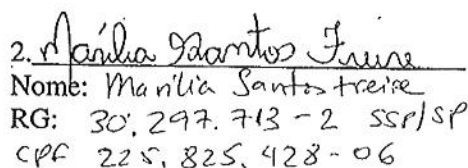 2. Marília Santos Freire
Nome: Marilia Santos Freire
RG: 30.297.713-2 SSP/SP
CPF 225.825.428-06